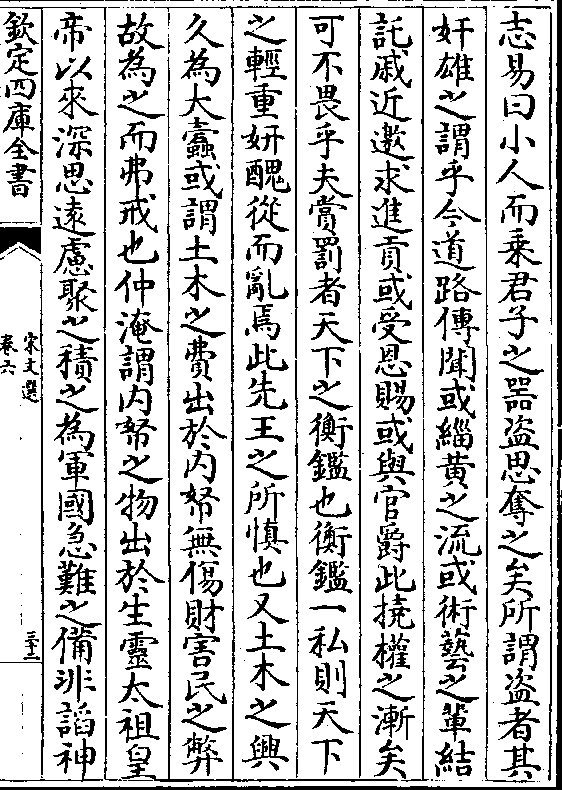 志易曰小人而乗君子之器盗思奪之矣所謂盗者其
奸雄之謂乎今道路傳聞或緇黄之流或術藝之輩結
託戚近邀求進貢或受恩賜或與官爵此撓權之漸矣
可不畏乎夫賞罰者天下之衡鑑也衡鑑一私則天下
之輕重妍醜從而亂焉此先王之所慎也又土木之興
久為大蠹或謂土木之費出於内帑無傷財害民之弊
故為之而弗戒也仲淹謂内帑之物出於生靈太祖皇
帝以來深思遠慮聚之積之為軍國急難之備非諂神
欽定四庫全書
宋文選
卷六
三十二